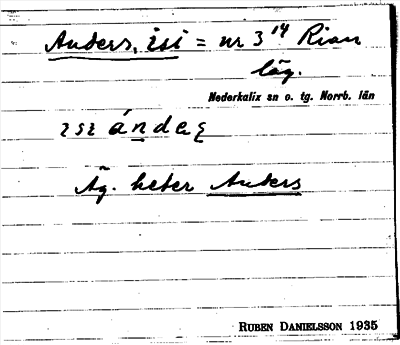 Anders, isi = nr 3¹⁴ Rian
läg.
Nederkalix sn o. tg. Norrb. län
Äg. heter Anders
RUBEN DANIELSSON 1935